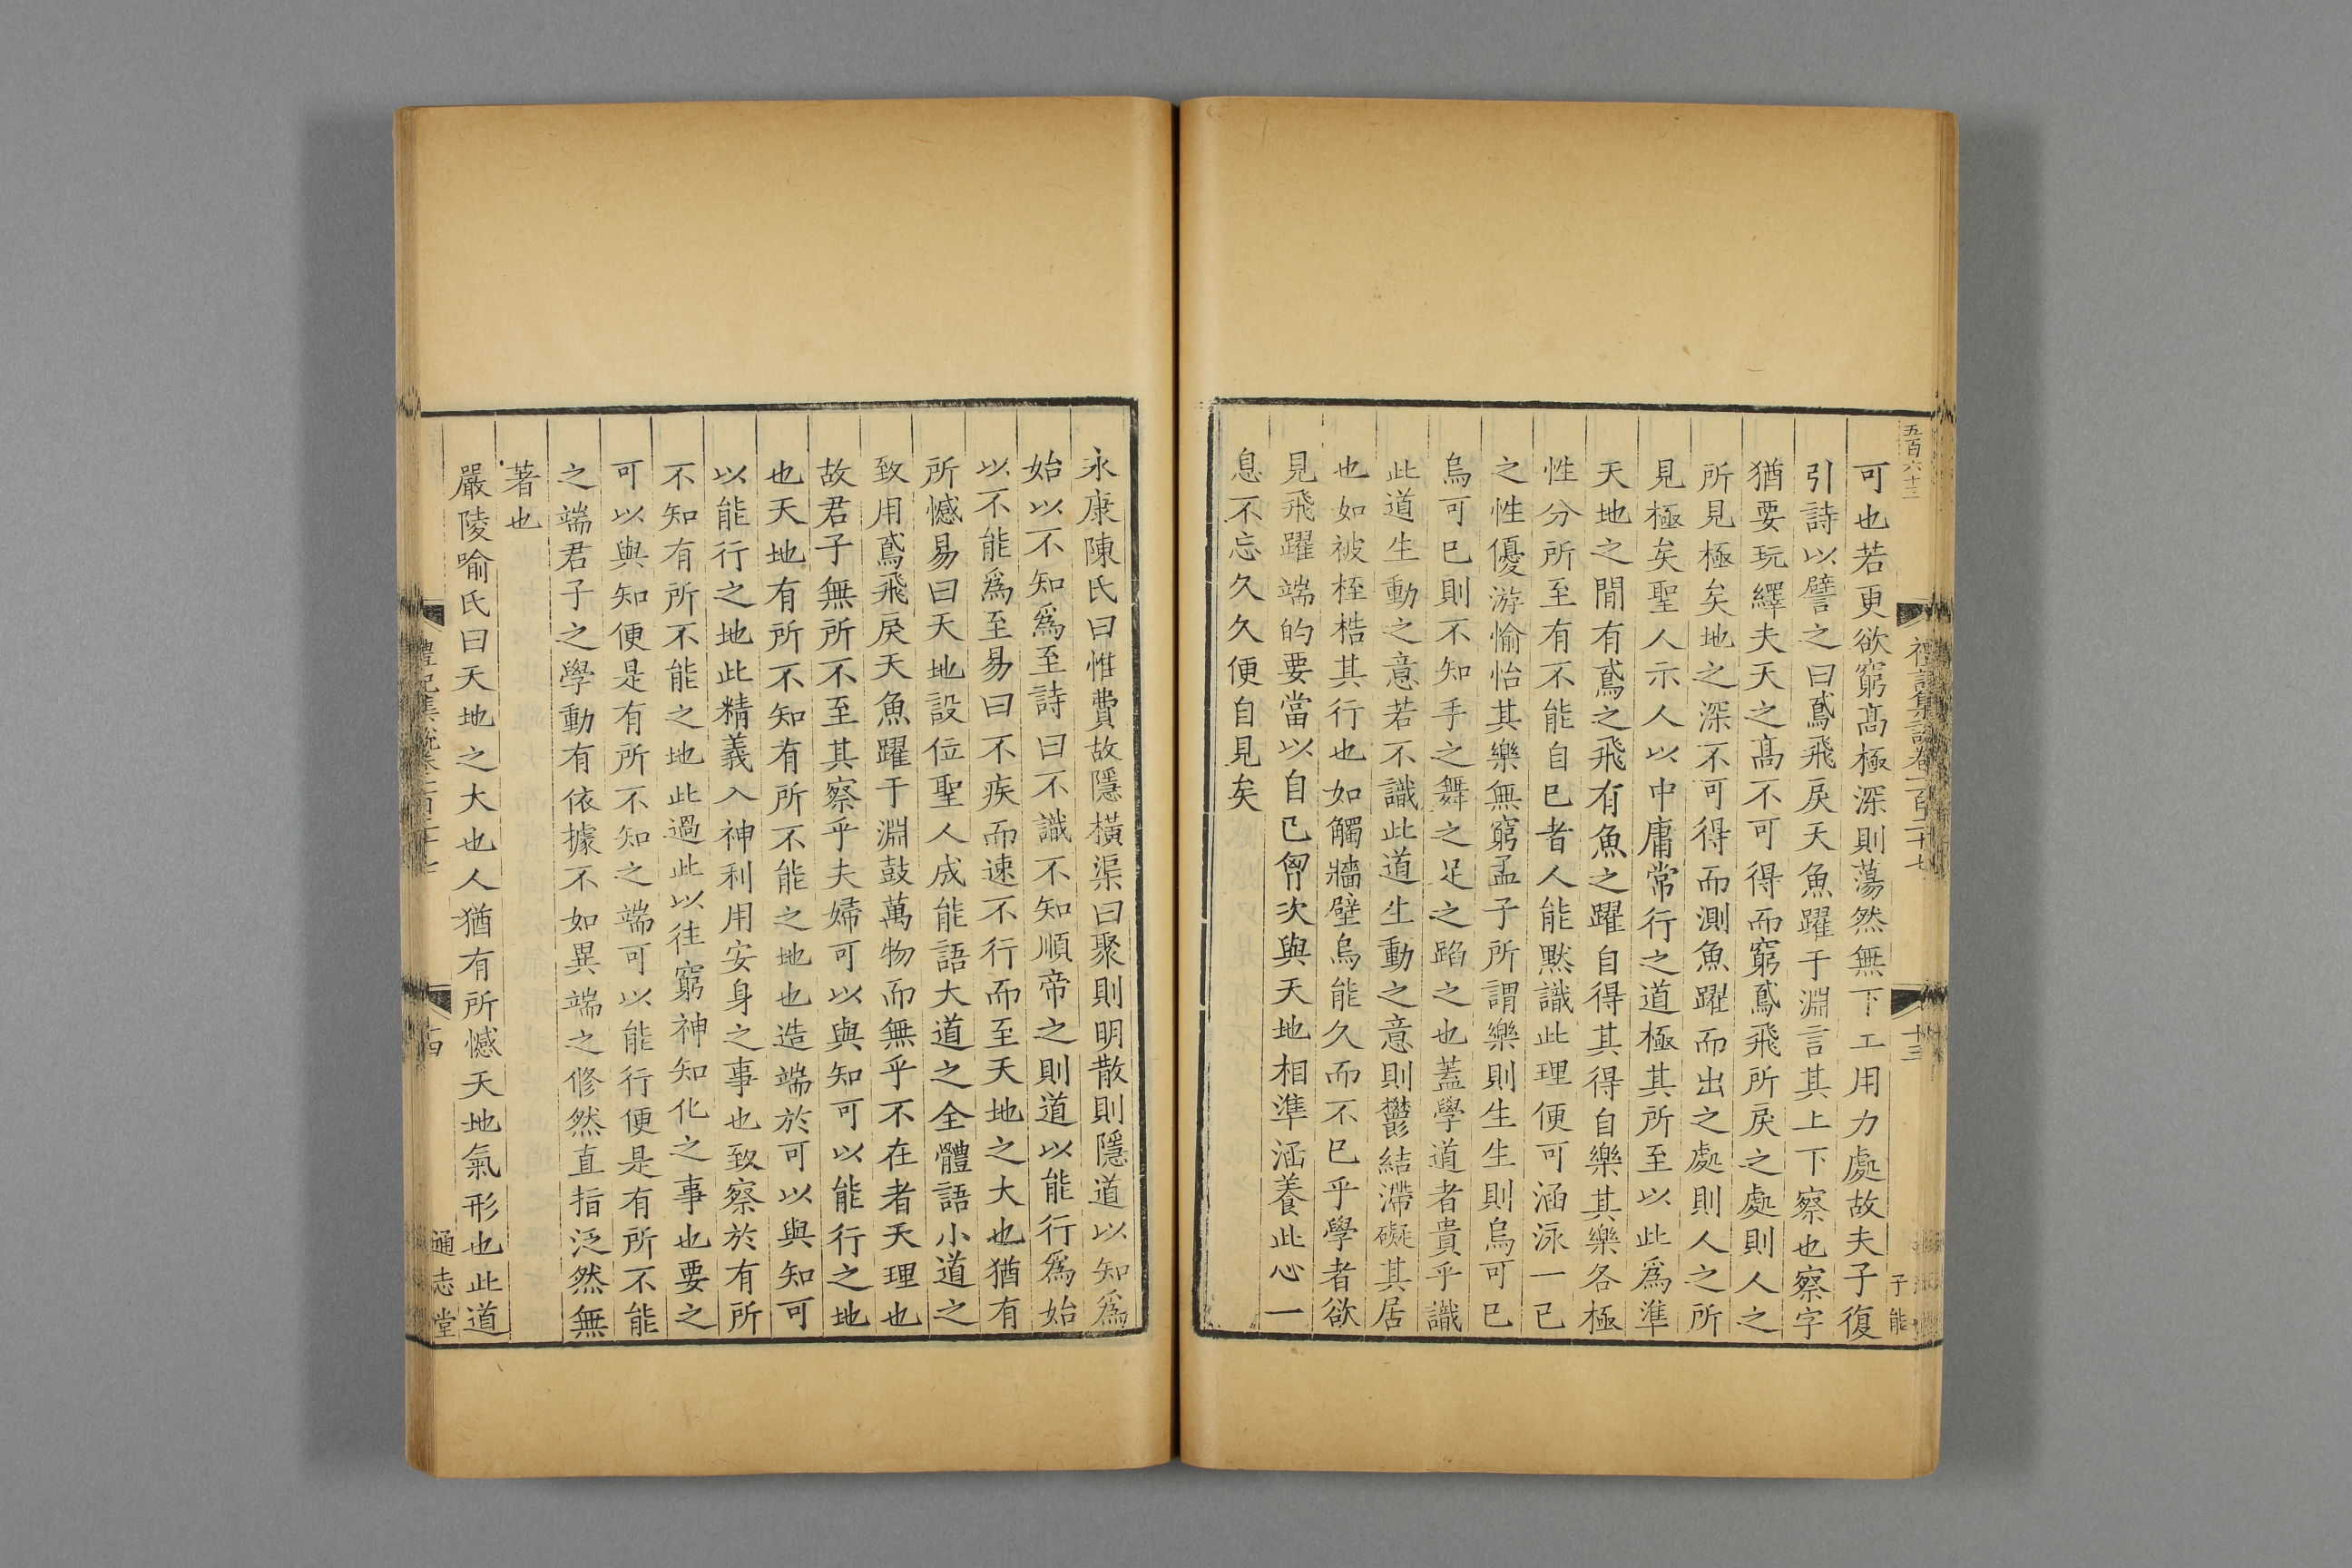 五百六十三
禮記集說卷一百二十七
十三
子能
可也若更欲窮髙極深則蕩然無下工用力處故夫子復
引詩以譬之曰鳶飛戾天魚躍于淵言其上下察也察字
猶要玩繹夫天之髙不可得而窮鳶飛所戾之處則人之
所見極矣地之深不可得而測魚躍而出之處則人之所
見極矣聖人示人以中庸常行之道極其所至以此爲準
天地之閒有鳶之飛有魚之躍自得其得自樂其樂各極
性分所至有不能自已者人能黙識此理便可涵泳一已
之性優游愉怡其樂無窮孟子所謂樂則生生則烏可已
烏可已則不知手之舞之足之蹈之也蓋學道者貴乎識
此道生動之意若不識此道生動之意則鬱結滯礙其居
也如被桎梏其行也如觸牆壁烏能久而不已乎學者欲
見飛躍端的要當以自己胷次與天地相準涵養此心一
息不忘久久便自見矣
永康陳氏曰惟費故隱橫渠曰聚則明散則隱道以知爲
始以不知爲至詩曰不識不知順帝之則道以能行爲始
以不能爲至易曰不疾而速不行而至天地之大也猶有
所憾易曰天地設位聖人成能語大道之全體語小道之
致用鳶飛戾天魚躍于淵鼓萬物而無乎不在者天理也
故君子無所不至其察乎夫婦可以與知可以能行之地
也天地有所不知有所不能之地也造端於可以與知可
以能行之地此精義入神利用安身之事也致察於有所
不知有所不能之地此過此以往窮神知化之事也要之
可以與知便是有所不知之端可以能行便是有所不能
之端君子之學動有依據不如異端之修然直指泛然無
著也
嚴陵喻氏曰天地之大也人猶有所憾天地氣形也此道
禮記集說卷一百二十七
十四
通志堂